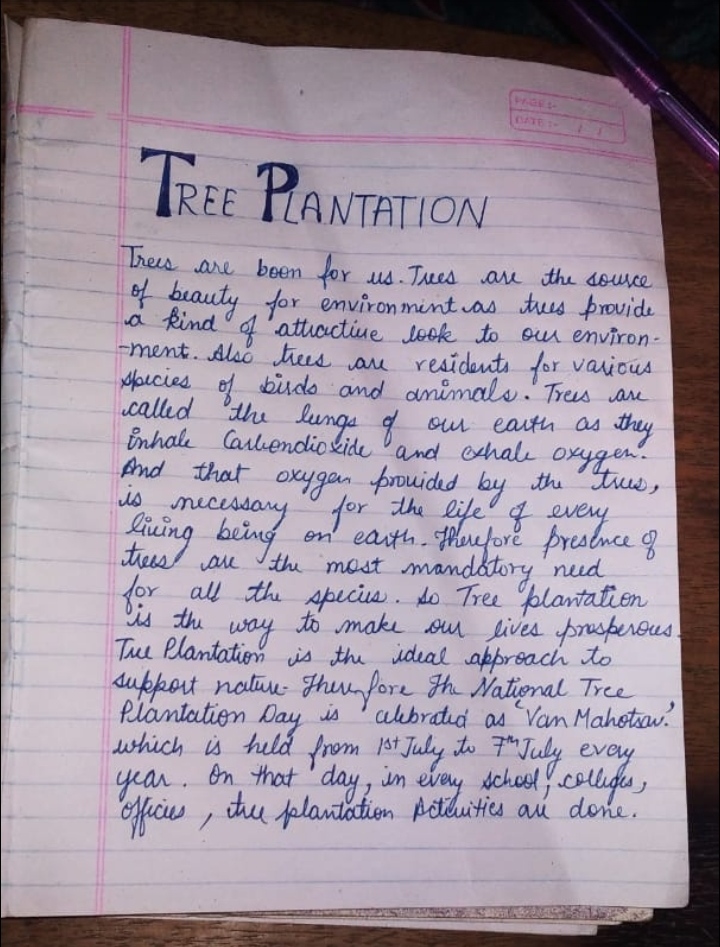 PAGE :-
DATE :- / /
TREE PLANTATION
Trees are boon for us. Trees are the source
of beauty for environment as trees provide
a kind of attractive look to our environ-
-ment. Also trees are residents for various
species of birds and animals. Trees are
called the lungs of our earth as they
inhale Carbondioxide and exhale oxygen.
And that oxygen provided by the trees,
is necessary for the life of every
living being on earth. Therefore presence of
trees are the most mandatory need
for all the species. So Tree plantation
is the way to make our lives prosperous.
Tree Plantation is the ideal approach to
support nature. Therefore The National Tree
Plantation Day is celebrated as 'Van Mahotsav.'
which is held from 1st July to 7th July every
year. On that day, in every school, colleges,
officies, tree plantation Activities are done.